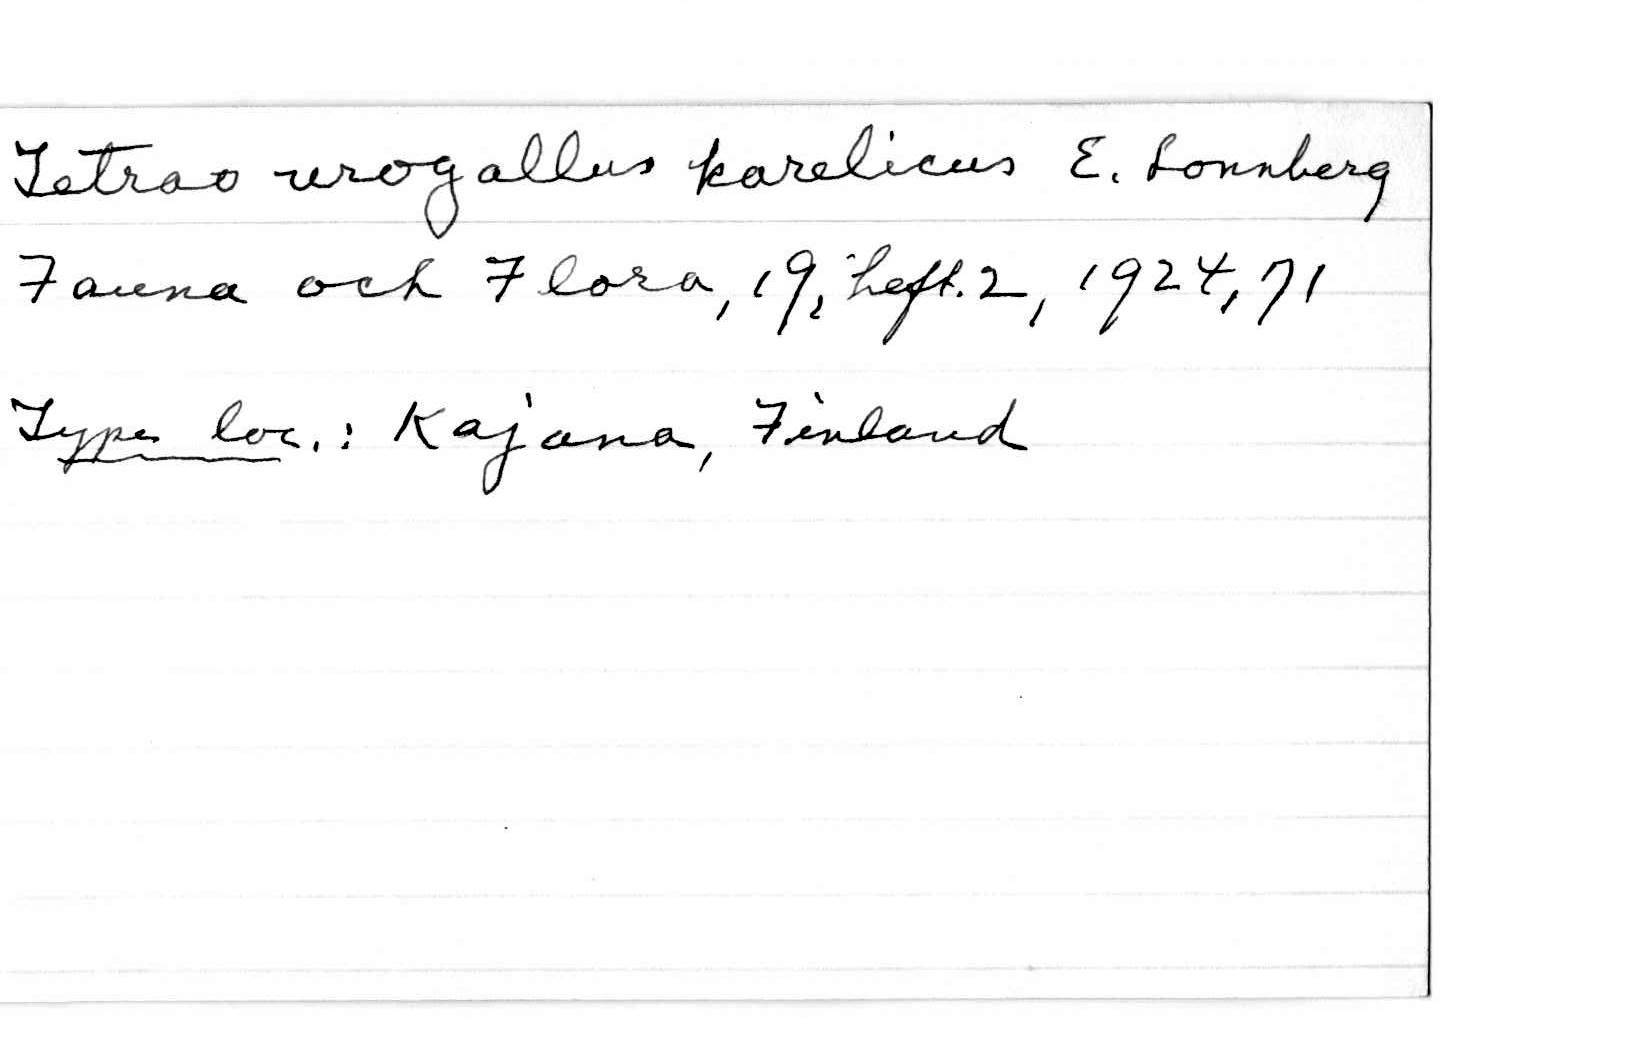 Tetrao urogallus karelicus E. Lonnberg
Fauna och Flora, 19, heft. 2, 1924, 71
Type loc.: Kajana, Finland